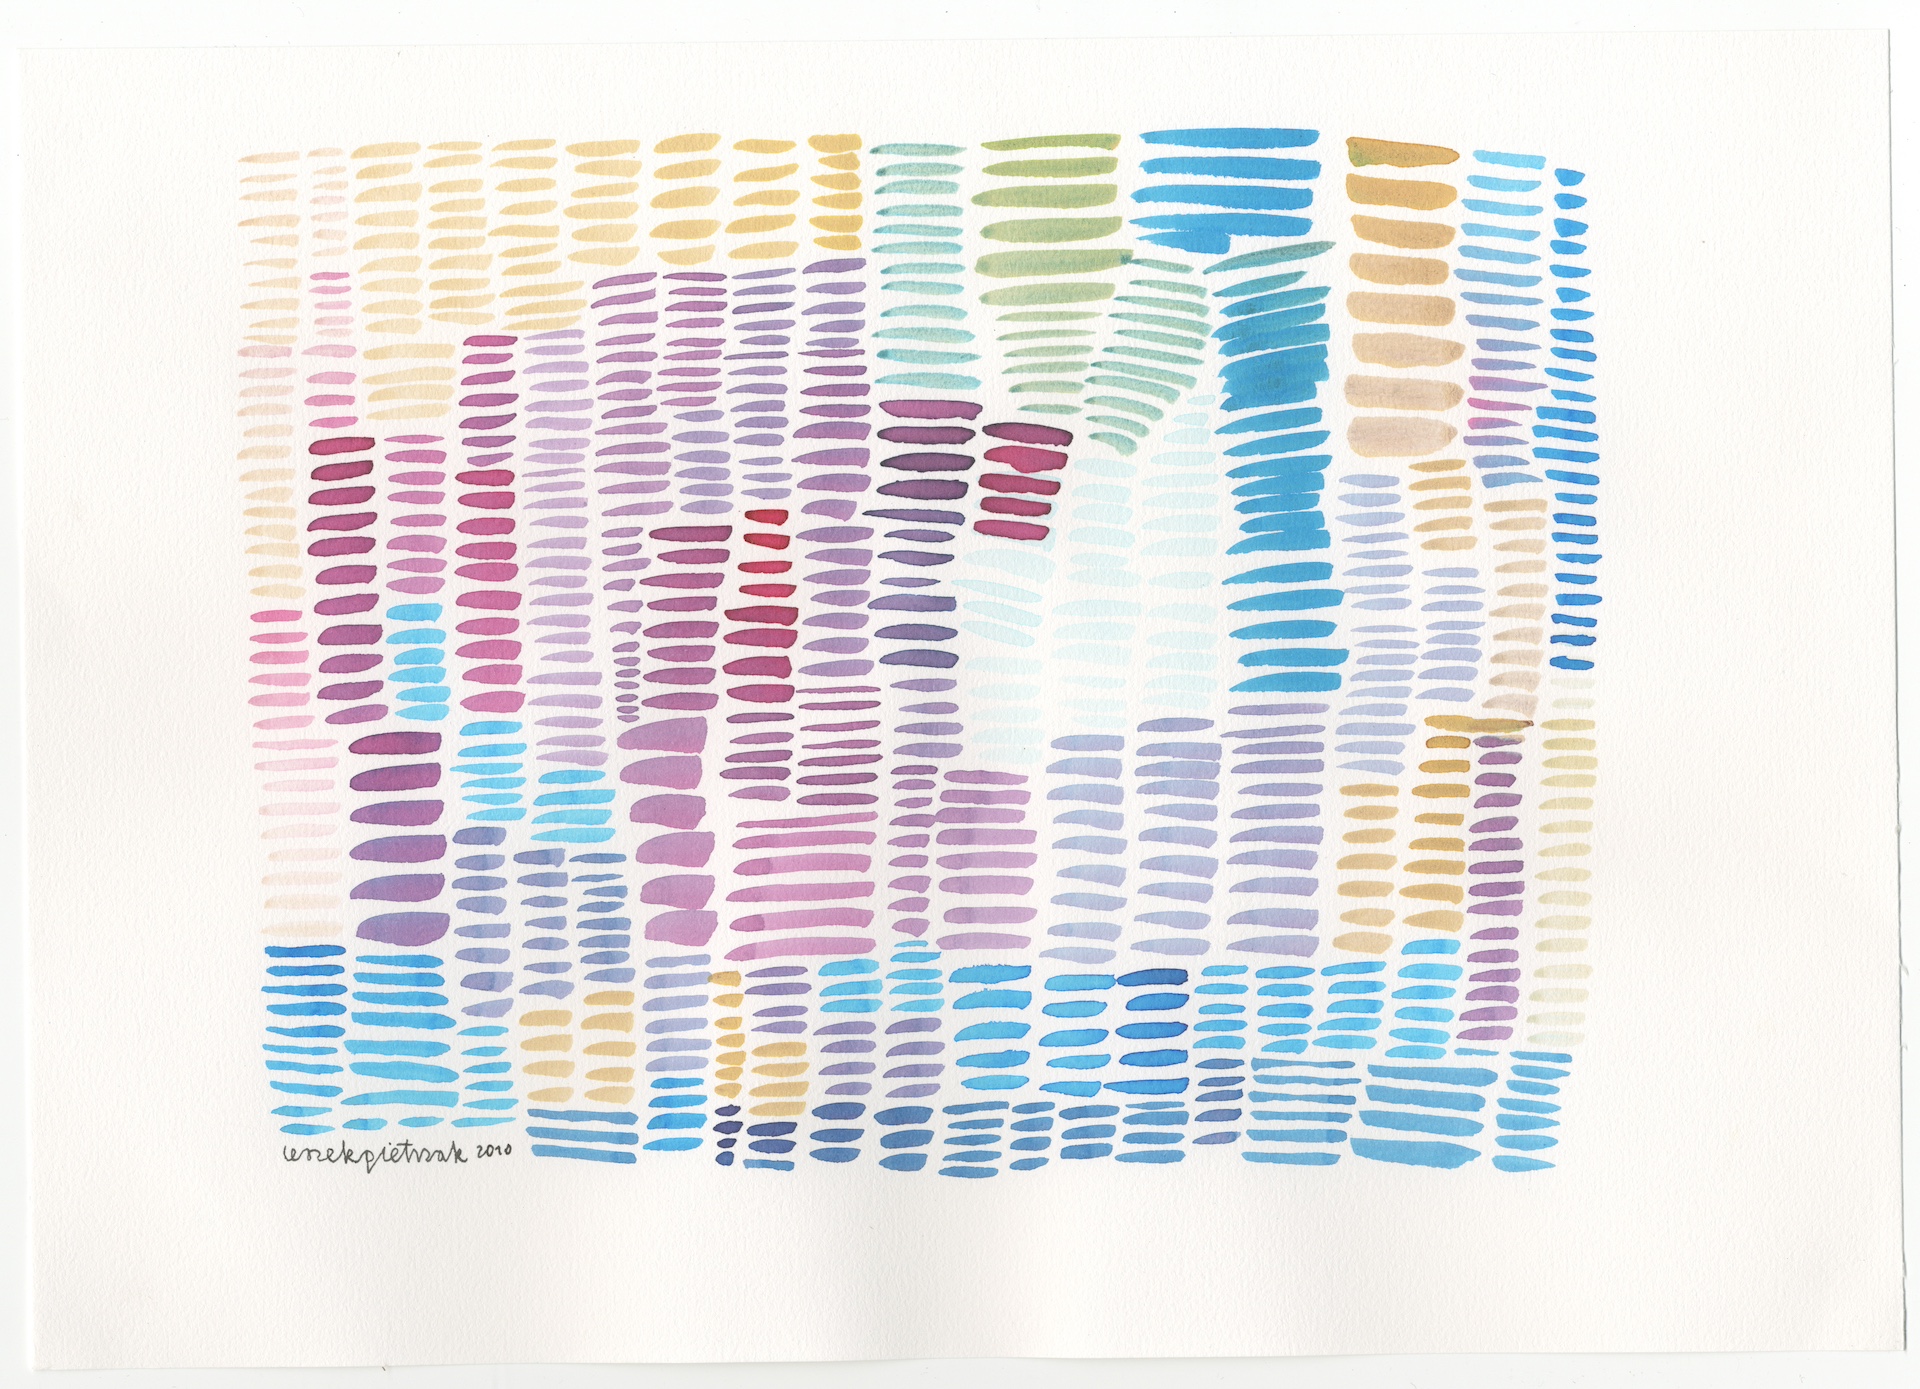 leszekpietrzak 2010